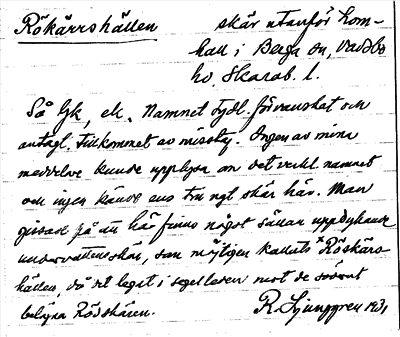 Rökärrshällen
skär utanför hem-
han i Berga sn, Vadsbo
hd, Skarab. l.
Så Gk, ek. Namnet tydl. förvanskat och
antagl. tillkommet av misstag. Ingen av mina
meddelare kunde upplysa om det verkl. namnet
och ingen kände ens till ngt skär här. Man
gissade på att här finns något sällan uppdykande
undervattensskär, som möjligen kallats *Rödskärs-
hällen, då det legat i segelleden mot de
belägna Rödskären.
R. Ljunggren 1931